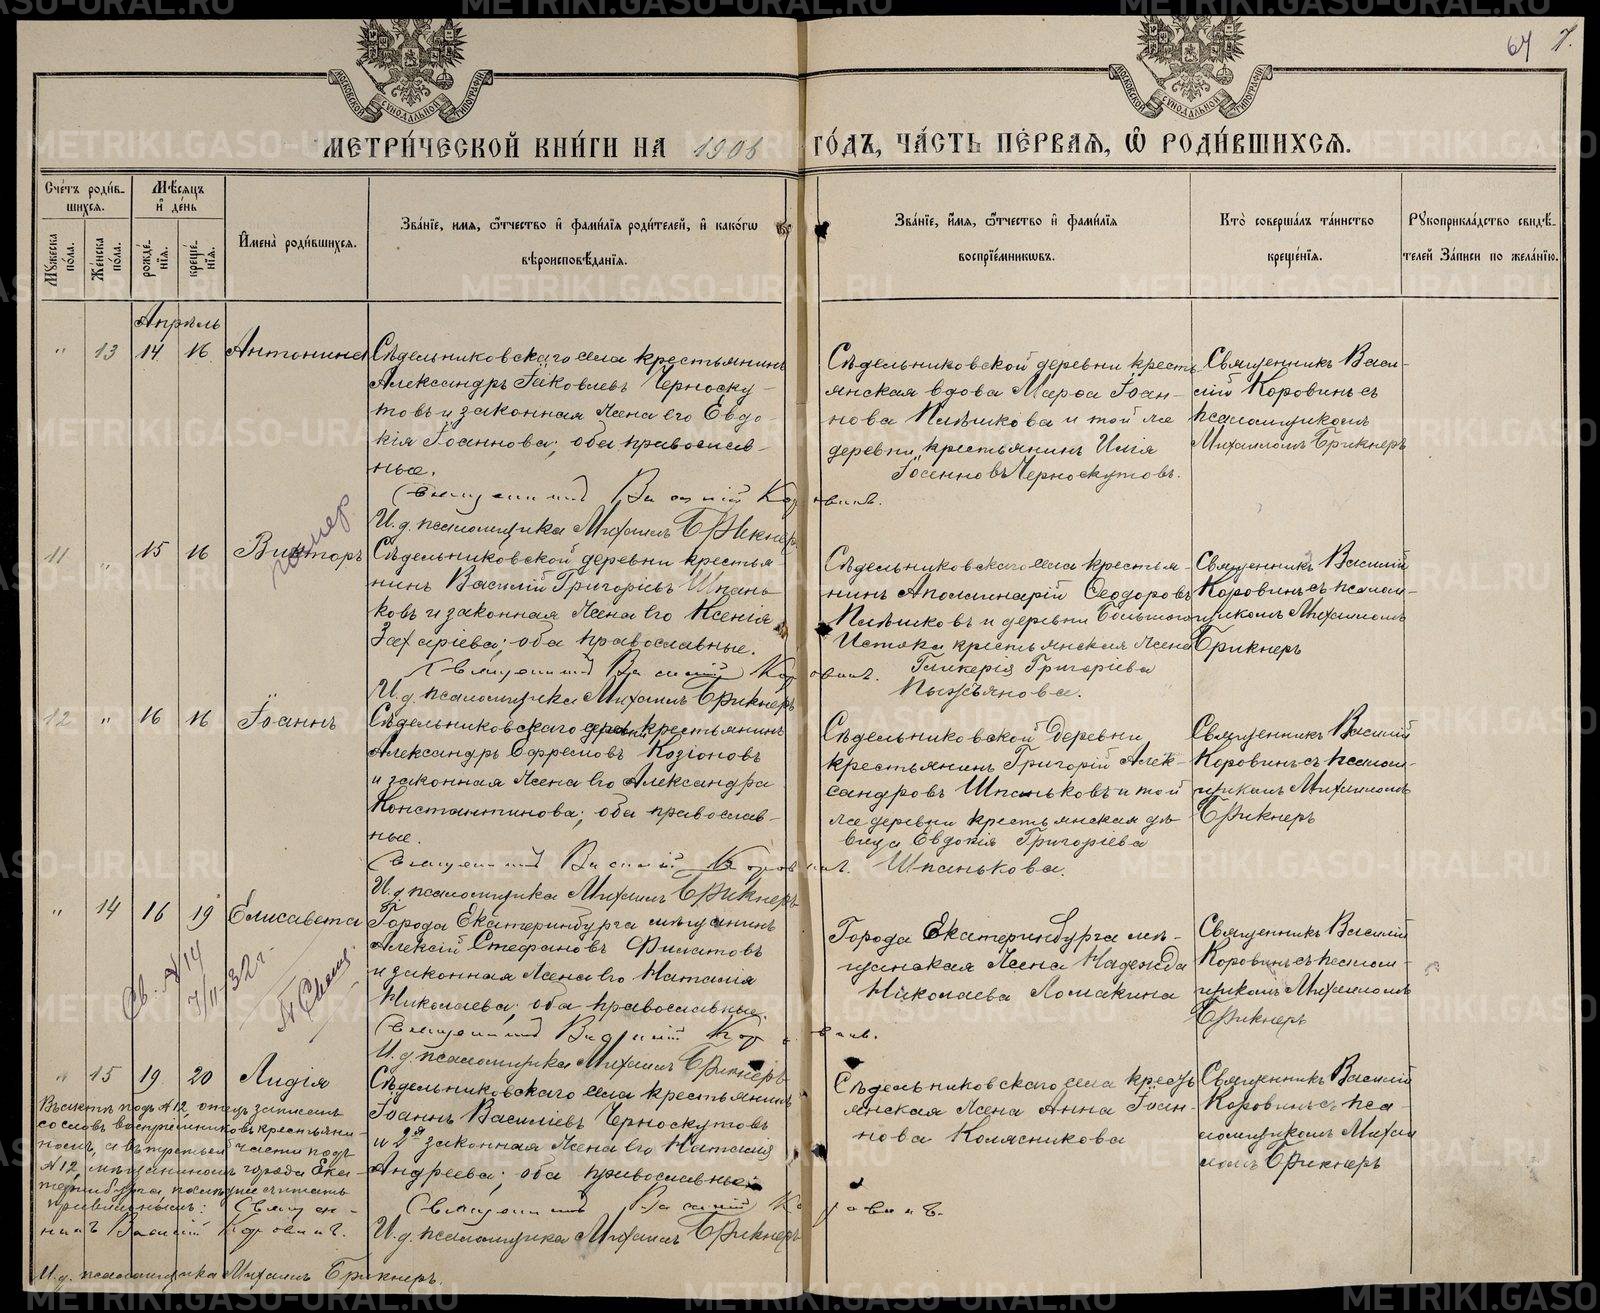 64 7.
МОСКОВСКОЙ СѴНОДАЛЬНОЙ ТИПОГРАФІИ
МОСКОВСКОЙ СѴНОДАЛЬНОЙ ТИПОГРАФІИ
МЕТРИ́ЧЕСКОЙ КНИ́ГИ НА 1906 ГО́ДЪ, ЧА́СТЬ ПЕ́РВАЯ, Ѿ РОДИ́ВШИХСЯ.
Сче́тъ роди́в-
шихся.
Мужеска по́ла.
Же́нска по́ла.
Мѣ́сяцъ
и де́нь
рожде́-
нїя.
креще́-
нїя.
И҆мена̀ роди́вшихся.
Зва́нїе, имя, ѻ҆́тчество и҆ фами́лїя роди́телей, и҆ како́гѡ
вѣроисповѣ́данїя.
Зва́нїе, и҆́мя, ѻ҆́тчество и҆ фами́лїя
воспрїе́мникѡвъ.
Кто̀ соверша́лъ та́инство
креще́нїя.
Рꙋкоприкла́дство свидѣ́-
телей за́писи по жела́нїю.
Апрѣль
" 13 14 16 Антонина
Сѣдельниковскаго села крестьянинъ
Александръ Іаковлевъ Черноску-
товъ и законная жена его Евдо-
кія Іоаннова; оба православ-
ные.
Священникъ Василій Коровинъ.
И. д. псаломщика Михаилъ Брикнеръ
Сѣдельниковской деревни кресть-
янская вдова Марѳа Іоан-
нова Пьянкова и той же
деревни крестьянинъ Илія
Іосифовъ Черноскутовъ.
Священникъ Васи-
лій Коровинъ съ
псаломщикомъ
Михаиломъ Брикнеръ
11 " 15 16 Викторъ
Сѣдельниковской деревни крестья-
нинъ Василій Григорьевъ Шпань-
ковъ и законная жена его Ксенія
Захаріева; оба православные.
Священникъ Василій Коровинъ.
И. д. псаломщика Михаилъ Брикнеръ
Сѣдельниковскаго села крестья-
нинъ Аполлинарій Ѳеодоровъ
и деревни Большого
Истока крестьянская жена
Гликерія Григоріева
Пыжьянова.
Священникъ Василій
Коровинъ съ псалом-
щикомъ Михаиломъ
Брикнеръ
12 " 16 16 Іоаннъ
Сѣдельниковскаго крестьянинъ
Александръ Ефремовъ Козіоновъ
и законная жена его Александра
Константинова; оба православ-
ные.
Священникъ Василій Коровинъ.
И. д. псаломщика Михаилъ Брикнеръ
Сѣдельниковской деревни
крестьянинъ Григорій Алек-
сандровъ Шпаньковъ и той
же деревни крестьянская дѣ-
вица Евдокія Григоріева
Шпанькова.
Священникъ Василій
Коровинъ съ псалом-
щикомъ Михаиломъ
Брикнеръ
" 14 16 19 Елисавета
Города Екатеринбурга мѣщанинъ
Алексій Стефановъ Филатовъ
и законная жена его Наталія
Николаева; оба православные.
Священникъ Василій Коровинъ.
И. д. псаломщика Михаилъ Брикнеръ
Города Екатеринбурга мѣ-
щанская жена Надежда
Николаева Ломакина
Священникъ Василій
Коровинъ съ псалом-
щикомъ Михаиломъ
Брикнеръ
Св. № 14
7/II-32 г.
" 15 19 20 Лидія
Сѣдельниковскаго села крестьянинъ
Іоаннъ Василіевъ Черноскутовъ
и 2я законная жена его Наталія
Андреева; оба православные.
Священникъ Василій Коровинъ.
И. д. псаломщика Михаилъ Брикнеръ
Сѣдельниковскаго села кресть-
янская жена Анна Іоан-
нова Колясникова
Священникъ Василій
Коровинъ съ пса-
ломщикомъ Михаи-
ломъ Брикнеръ
Въ актѣ подъ № 12, отецъ записанъ
со словъ воспріемниковъ крестьяни-
номъ, а въ третьей части подъ
№ 12, мѣщаниномъ города Ека-
теринбурга, послѣднее считать
правильнымъ: Священ-
никъ Василій Коровинъ.
И. д. псаломщика Михаилъ Брикнеръ.
METRIKI.GASO-URAL.RU